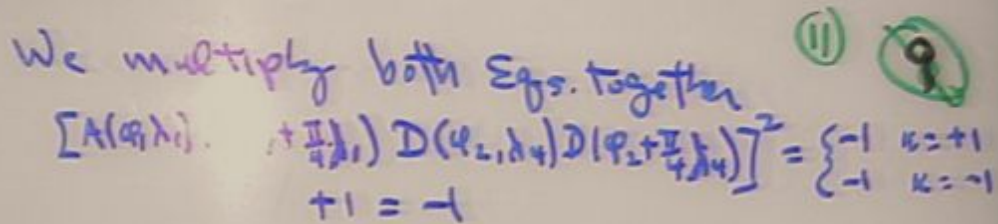 We multiply both Eqs. together (11) 9
[A(φ₁λ₁). + π/4, λ₁) D(φ₂, λ₄) D(φ₂ + π/4, λ₄)]² = { -1 κ = +1
-1 κ = -1
+1 = -1